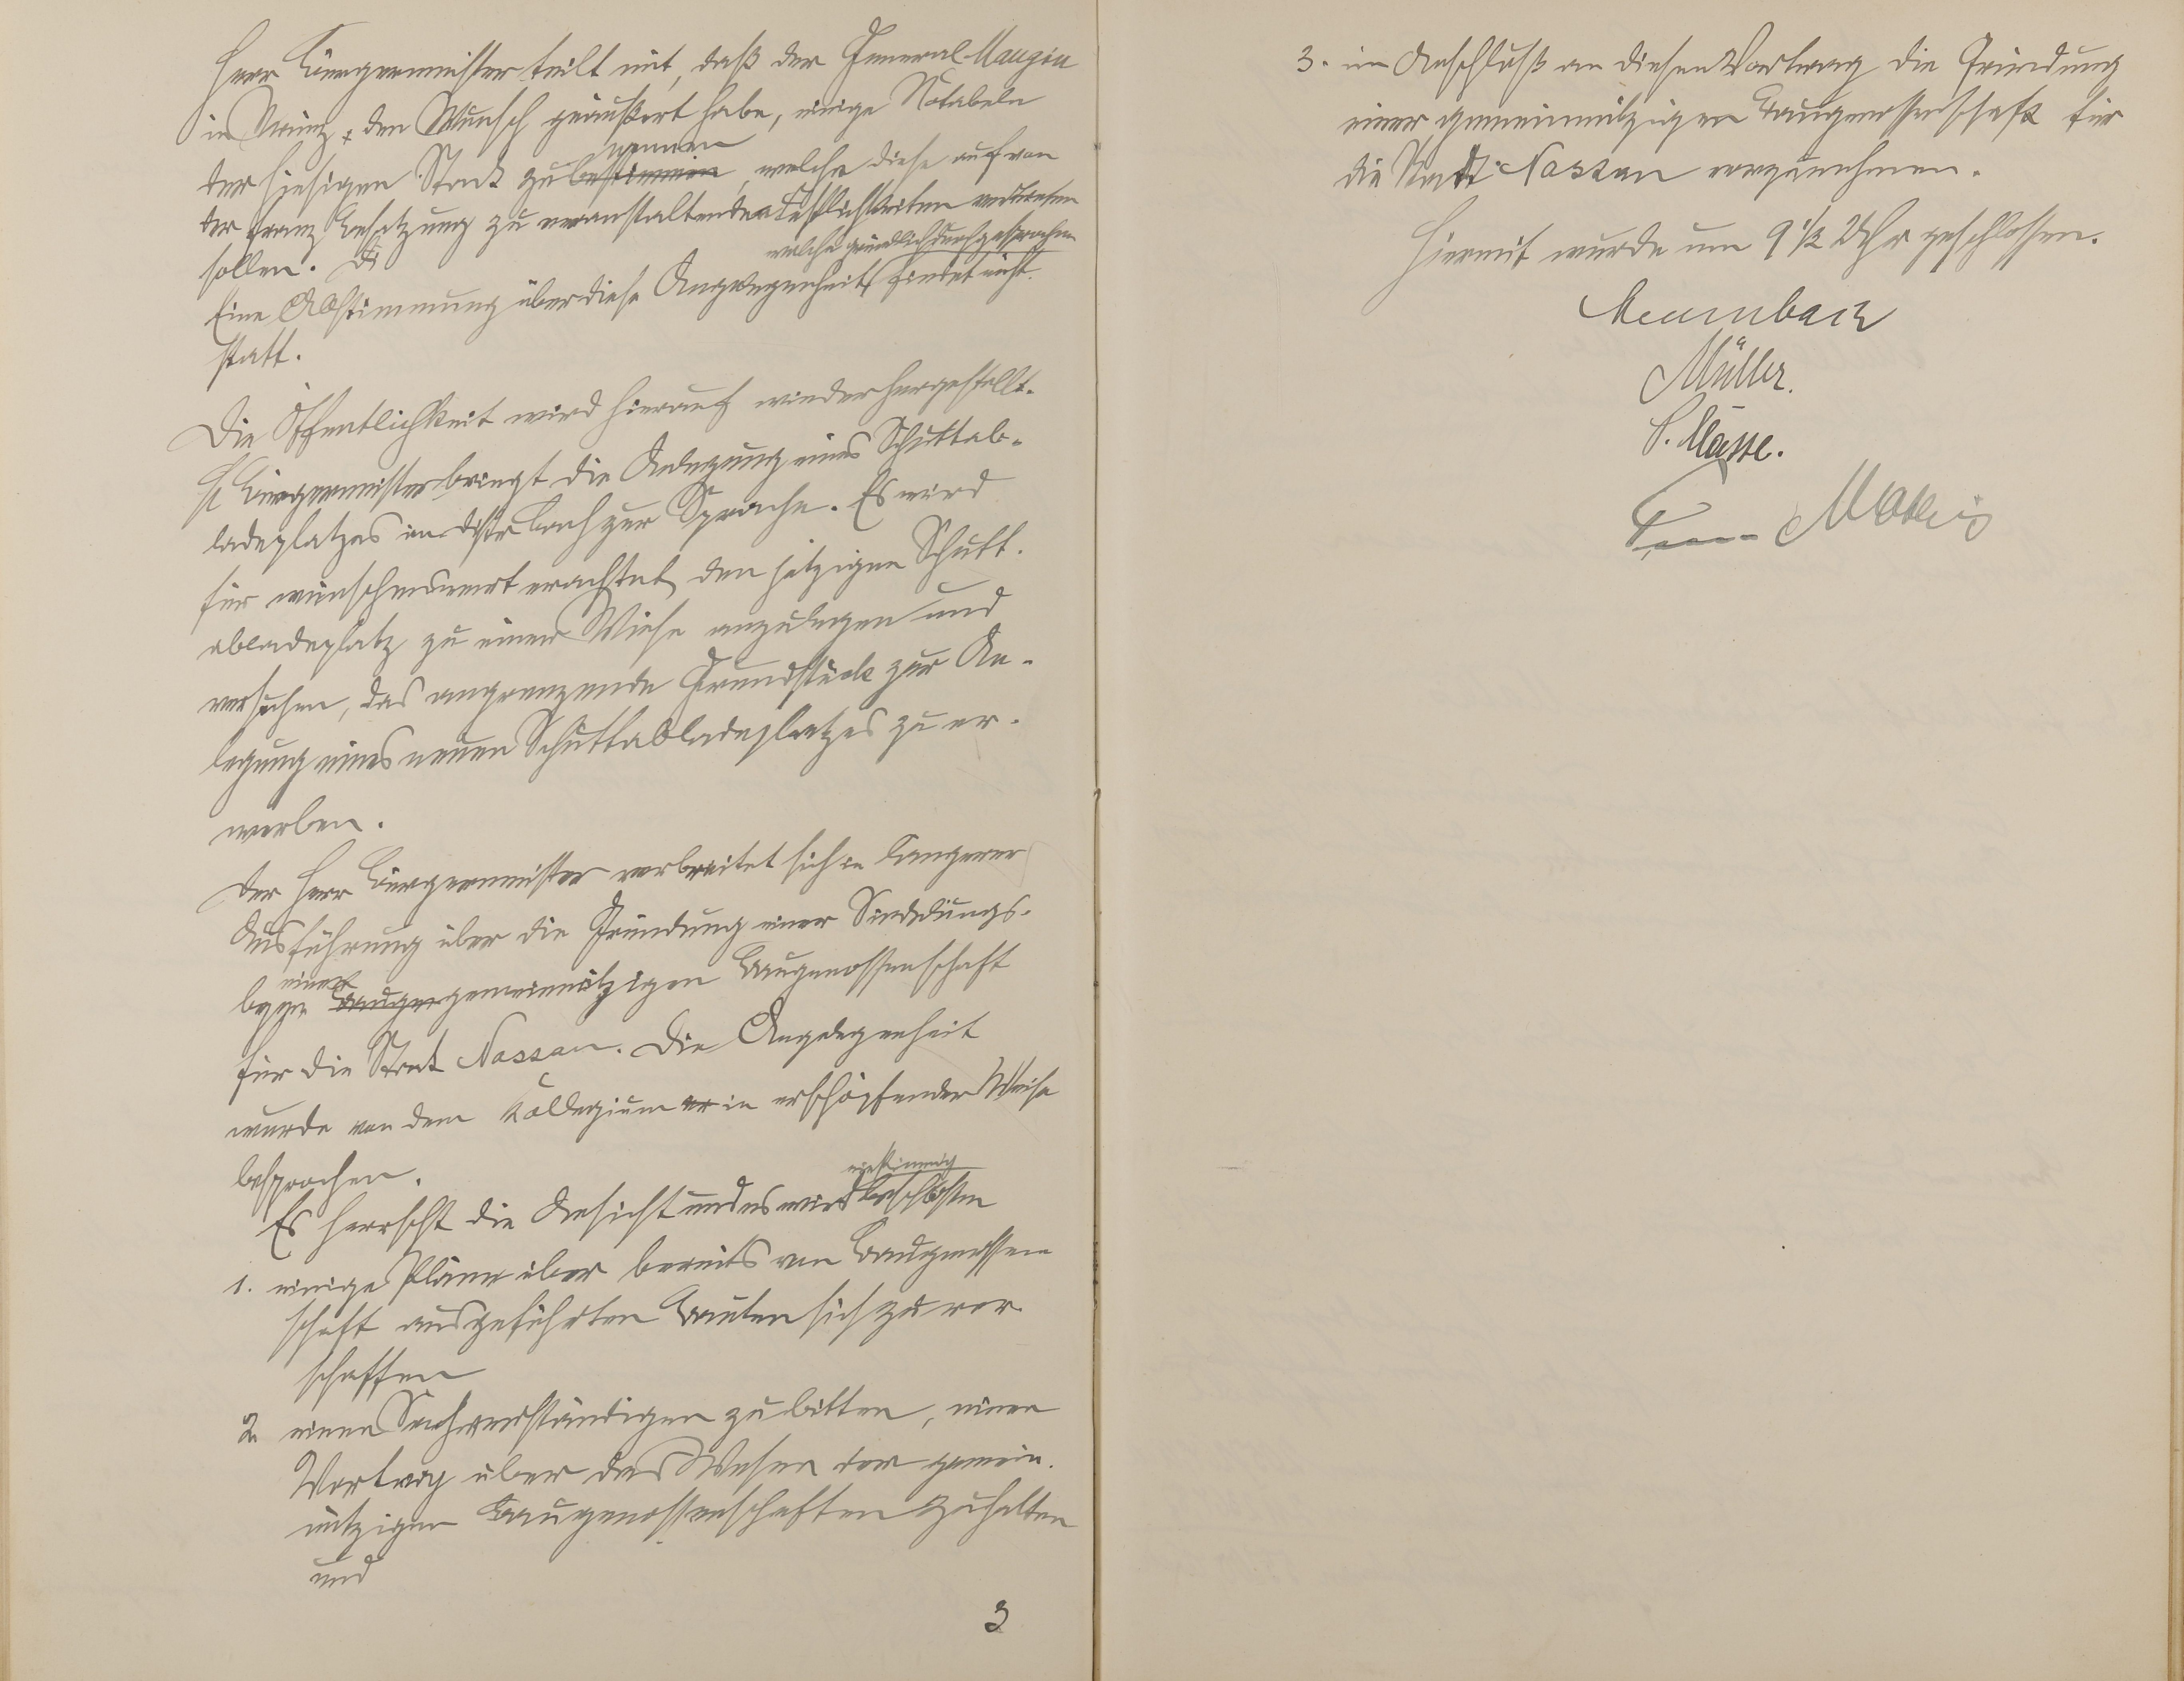 Herr Bürgermeister teilt mit, daß der General Mangin
in Mainz, den Wunsch geäußert habe, einige Notabeln
nennen
der hiesigen Stadt zu bestimmen, welche diese auf von
der franz Besatzung zu veranstaltenden Festlichkeiten vertreten
sollen. Di
welche gründlich durchgesprochen
Eine Abstimmung über diese Angelegenheit findet nicht
statt.
Die Öffentlichkeit wird hierauf wiederhergestellt.
H Bürgermeister bringt die Anlegung eines Schuttab-
ladeplatzes im Distr Bach zur Sprache. Es wird
für wünschenswert erachtet, den jetzigen Schutt-
abladeplatz zu einer Wiese anzulegen und
versuchen, das angrenzende Grundstück zur An-
legung eines neuen Schuttabladeplatzes zu er-
werben.
Der Herr Bürgermeister verbreitet sich in längerer
Ausführung über die Gründung einer Siedelungs-
einer
bezw. gemeinnützigen Baugenossenschaft
für die Stadt Nassau. Die Angelegenheit
wurde von dem Kollegium er in erschöpfender Weise
besprochen.
einstimmig
Es herrscht die Ansicht und es wird beschlossen
1. einige Pläne über bereits von Baugenossen
schaft ausgeführten Bauten sich zu ver-
schaffen
2. einen Sachverständigen zu bitten, einen
Vortrag über das Wesen der gemein-
nützigen Baugenossenschaften zu halten
und
3
3. im Anschluß an diesen Vortrag die Gründung
einer gemeinnützigen Baugenossenschaft für
die Stadt Nassau vorzunehmen.
Hiermit wurde um 9 1/2 Uhr geschlossen.
Müller.